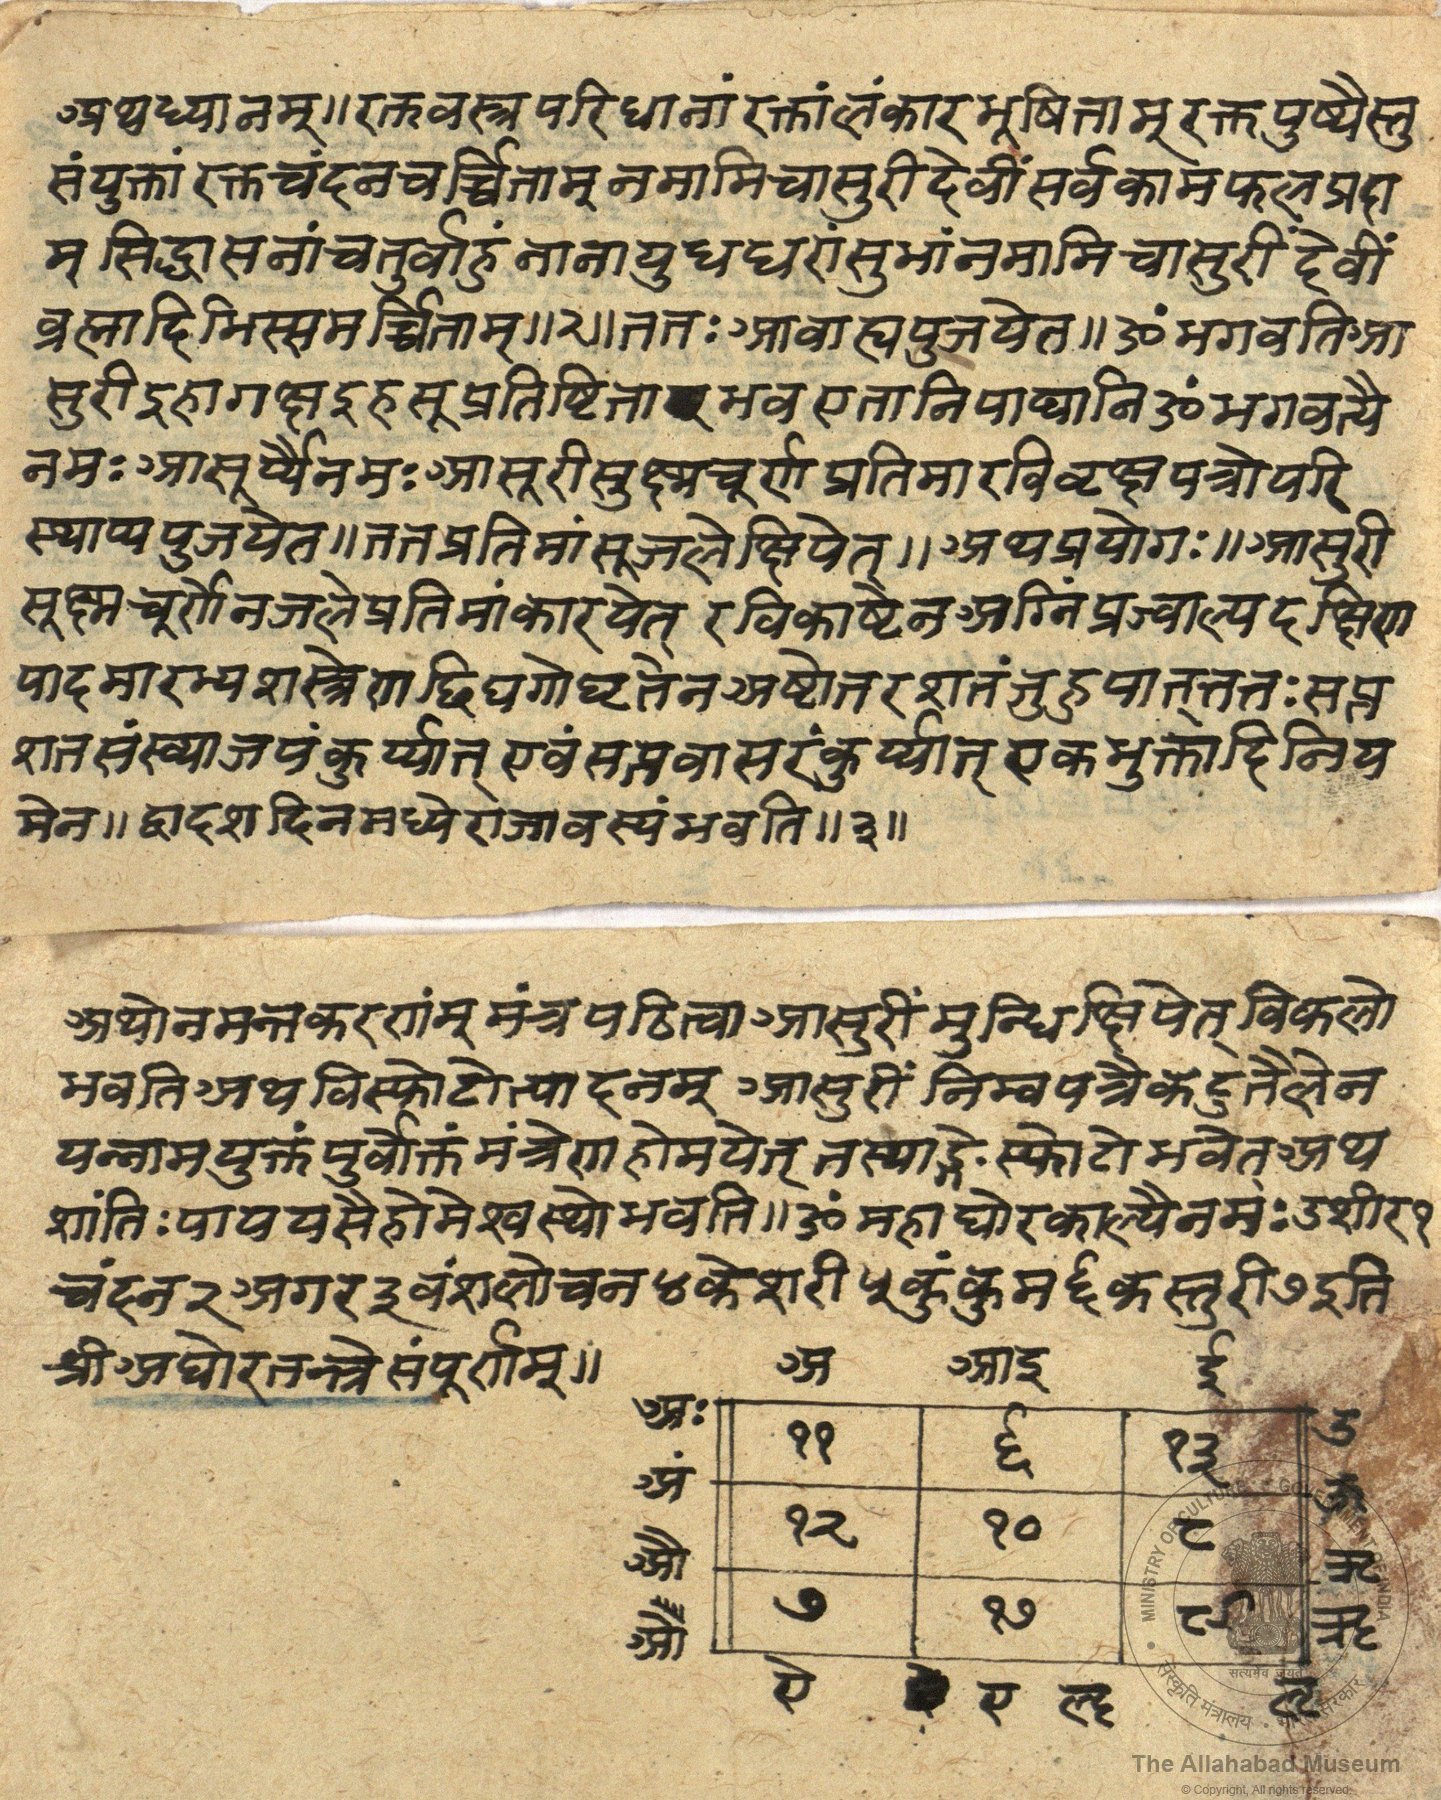 अथ ध्यानम्॥ रक्त वस्त्र परिधानां रक्तांलंकार भूषिताम् रक्त पुष्पैस्तु
संयुक्तां रक्त चंदन चर्च्चिताम् नमामि चासुरी देवीं सर्व काम फल प्रदा
म् सिद्धासनां चतुर्वाहुं नाना युध धरां सुभां नमामि चासुरीं देवीं
व्रह्मादिभिस्समर्च्चिताम्॥२॥ ततः आवाह्य पुजयेत॥ ॐ भगवति आ
सुरी इहागक्ष इह सू प्रतिष्टिता भव एतानि पाद्यानि ॐ भगवत्यै
नमः आसूर्य्यै नमः आसूरी सुक्ष्म चूर्ण प्रतिमा रवि वृक्ष पत्रोपरि
स्थाप्य पुजयेत॥ तत प्रतिमां सूजले क्षिपेत्॥ अथ प्रयोगः॥ आसुरी
सूक्ष्म चूर्णेन जले प्रतिमां कारयेत् रविकाष्टेन अग्निं प्रज्वाल्य दक्षिण
पादमारभ्य शस्त्रेण छिघ गोघृतेन अष्टोत्तर शतं जुहुयात् ततः सप्त
शत संख्या जपं कुर्य्यात् एवं सप्त वासरं कुर्य्यात् एक भुक्तादि निय
मेन॥ द्वादश दिन मध्ये राजा वस्यं भवति॥३॥
अथोनमत्त करणांम् मंत्र पठित्वा आसुरीं मुन्धि क्षिपेत् विकलो
भवति अथ विस्फोटोत्पादनम् आसुरीं निम्व पत्रै कटु तैलेन
यन्नाम युक्तं पुर्वोक्तं मंत्रेण होमयेत् तस्याङ्गे स्फोटो भवेत् अथ
शांतिः पायसै होमे श्वस्थो भवति॥ ॐ महा घोर काल्यै नमः उशीर १
चंदन २ अगर ३ वंशलोचन ४ केशरी ५ कुंकुम ६ कस्तुरी ७ इति
श्री अघोर तन्त्रे संपूर्णाम्॥
अ आ इ ई
अः ११ ६ १३ उ
अं १२ १० ८ ऊ
औ ७ १७ ऋ
ओ ॠ
ऐ ए ॡ ऌ
MINISTRY OF CULTURE GOVERNMENT OF INDIA
सत्यमेव जयते
संस्कृति मंत्रालय भारत सरकार
The Allahabad Museum
© Copyright, All rights reserved.